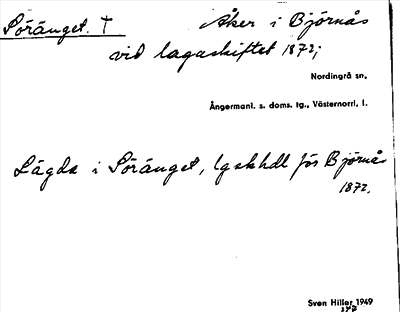 Söränget. † Åker i Björnås
vid lagaskiftet 1872;
Nordingrå sn.
Ångermanl. s. doms. tg., Västernorrl. l.
Lägda i Söränget, lgskhdl för Björnås
1872.
Sven Hiller 1949